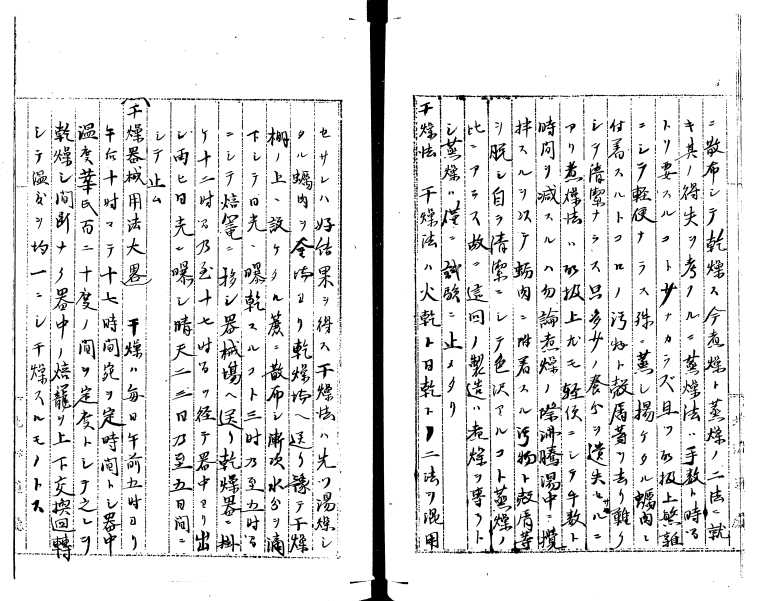 ニ散布シテ乾燥ス今煮燥ト蒸燥ノ二法ニ就
キ其ノ得失ヲ考フルニ蒸燥法ハ手数ト時間
トヲ要スルコト少ナカラズ且ツ取扱上煩雑
ニシテ軽便ナラス殊ニ蒸シ揚ケタル蠣肉ニ
付着スルトコロノ汚物ト殻屑ヲ去リ難ク
シテ清潔ナラス且多少ノ養分ヲ遺失セルニ
アリ煮燥法ハ取扱上尤モ軽便ニシテ手数ト
時間ヲ減スルハ勿論煮燥ノ際沸騰湯中ニ攪
拌スルヲ以テ蛎肉ニ附着スル汚物ト殻屑等
ヲ脱シ自ラ清潔ニシテ色沢アルコト蒸燥ノ
比ニアラス故ニ這回ノ製造ハ煮燥ヲ専ラト
シ蒸燥ハ僅ニ試験ニ止メタリ
干燥法 干燥法ハ火乾ト日乾トノ二法ヲ混用
セサレハ好結果ヲ得ス干燥法ハ先ツ湯燥シ
タル蠣肉ヲ 乾燥場ヘ送リ豫テ干燥
棚ノ上ニ設ケタル簾ニ散布シ漸次水分ヲ滴
下シテ日光ニ曝乾スルコト三時乃至五時間
ニシテ焙篭ニ移シ器械場ヘ送リ乾燥器ニ掛
ケ十二時間乃至十七時間ヲ径テ器中ヨリ出
シ両七日光ニ曝シ晴天二三日乃至五日間ニ
シテ止ム
(干燥器械用法大畧) 干燥ハ毎日午前五時ヨリ
午后十時マテ十七時間宛ヲ定時間トシ器中
温度華氏百二十度ノ間ヲ定度トシテ之レヲ
乾燥シ間断ナク器中ノ焙籠ヲ上下交換回轉
シテ温度ヲ均一ニシ干燥スルモノトス